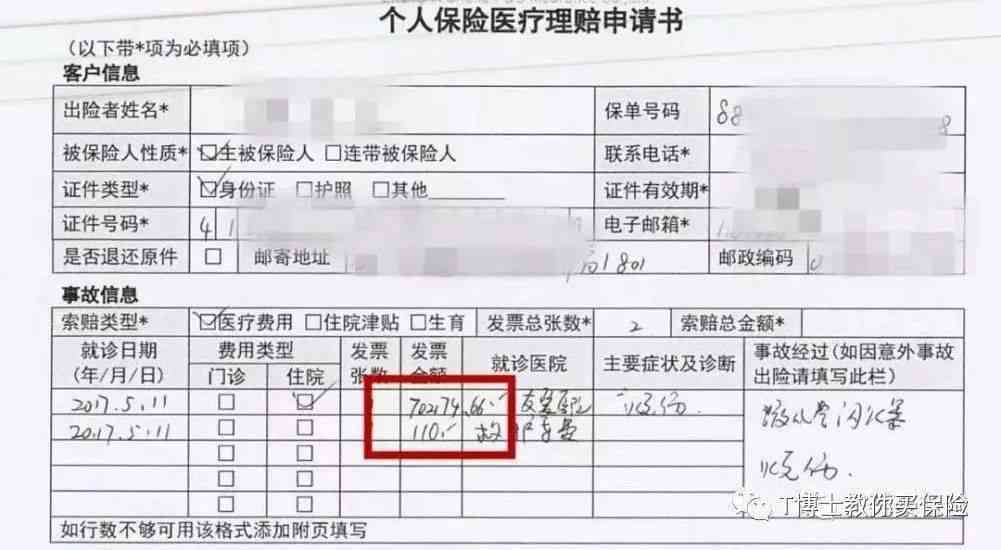 个人保险医疗理赔申请书
(以下带*项为必填项)
客户信息
出险者姓名* 保单号码 88 8
被保险人性质* 主被保险人 □连带被保险人 联系电话*
证件类型* 身份证 □护照 □其他 证件有效期*
证件号码* 41 电子邮箱*
是否退还原件 □ 邮寄地址 1801 邮政编码 0
事故信息
索赔类型* 医疗费用 □住院津贴 □生育 发票总张数* 2 索赔总金额*
就诊日期 (年/月/日) 费用类型 门诊 住院 发票张数 发票金额 就诊医院 主要症状及诊断 事故经过(如因意外事故出险请填写此栏)
2017.5.11 □ 702174.66 医院 烧伤
2017.5.11 □ □ 110.- 救护车费
烧伤.
□ □
□ □
□ □
如行数不够可用该格式添加附页填写
T博士教你买保险